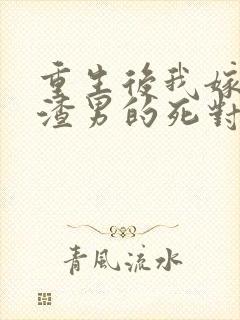 重生後我嫁
渣男的死對
青風流水